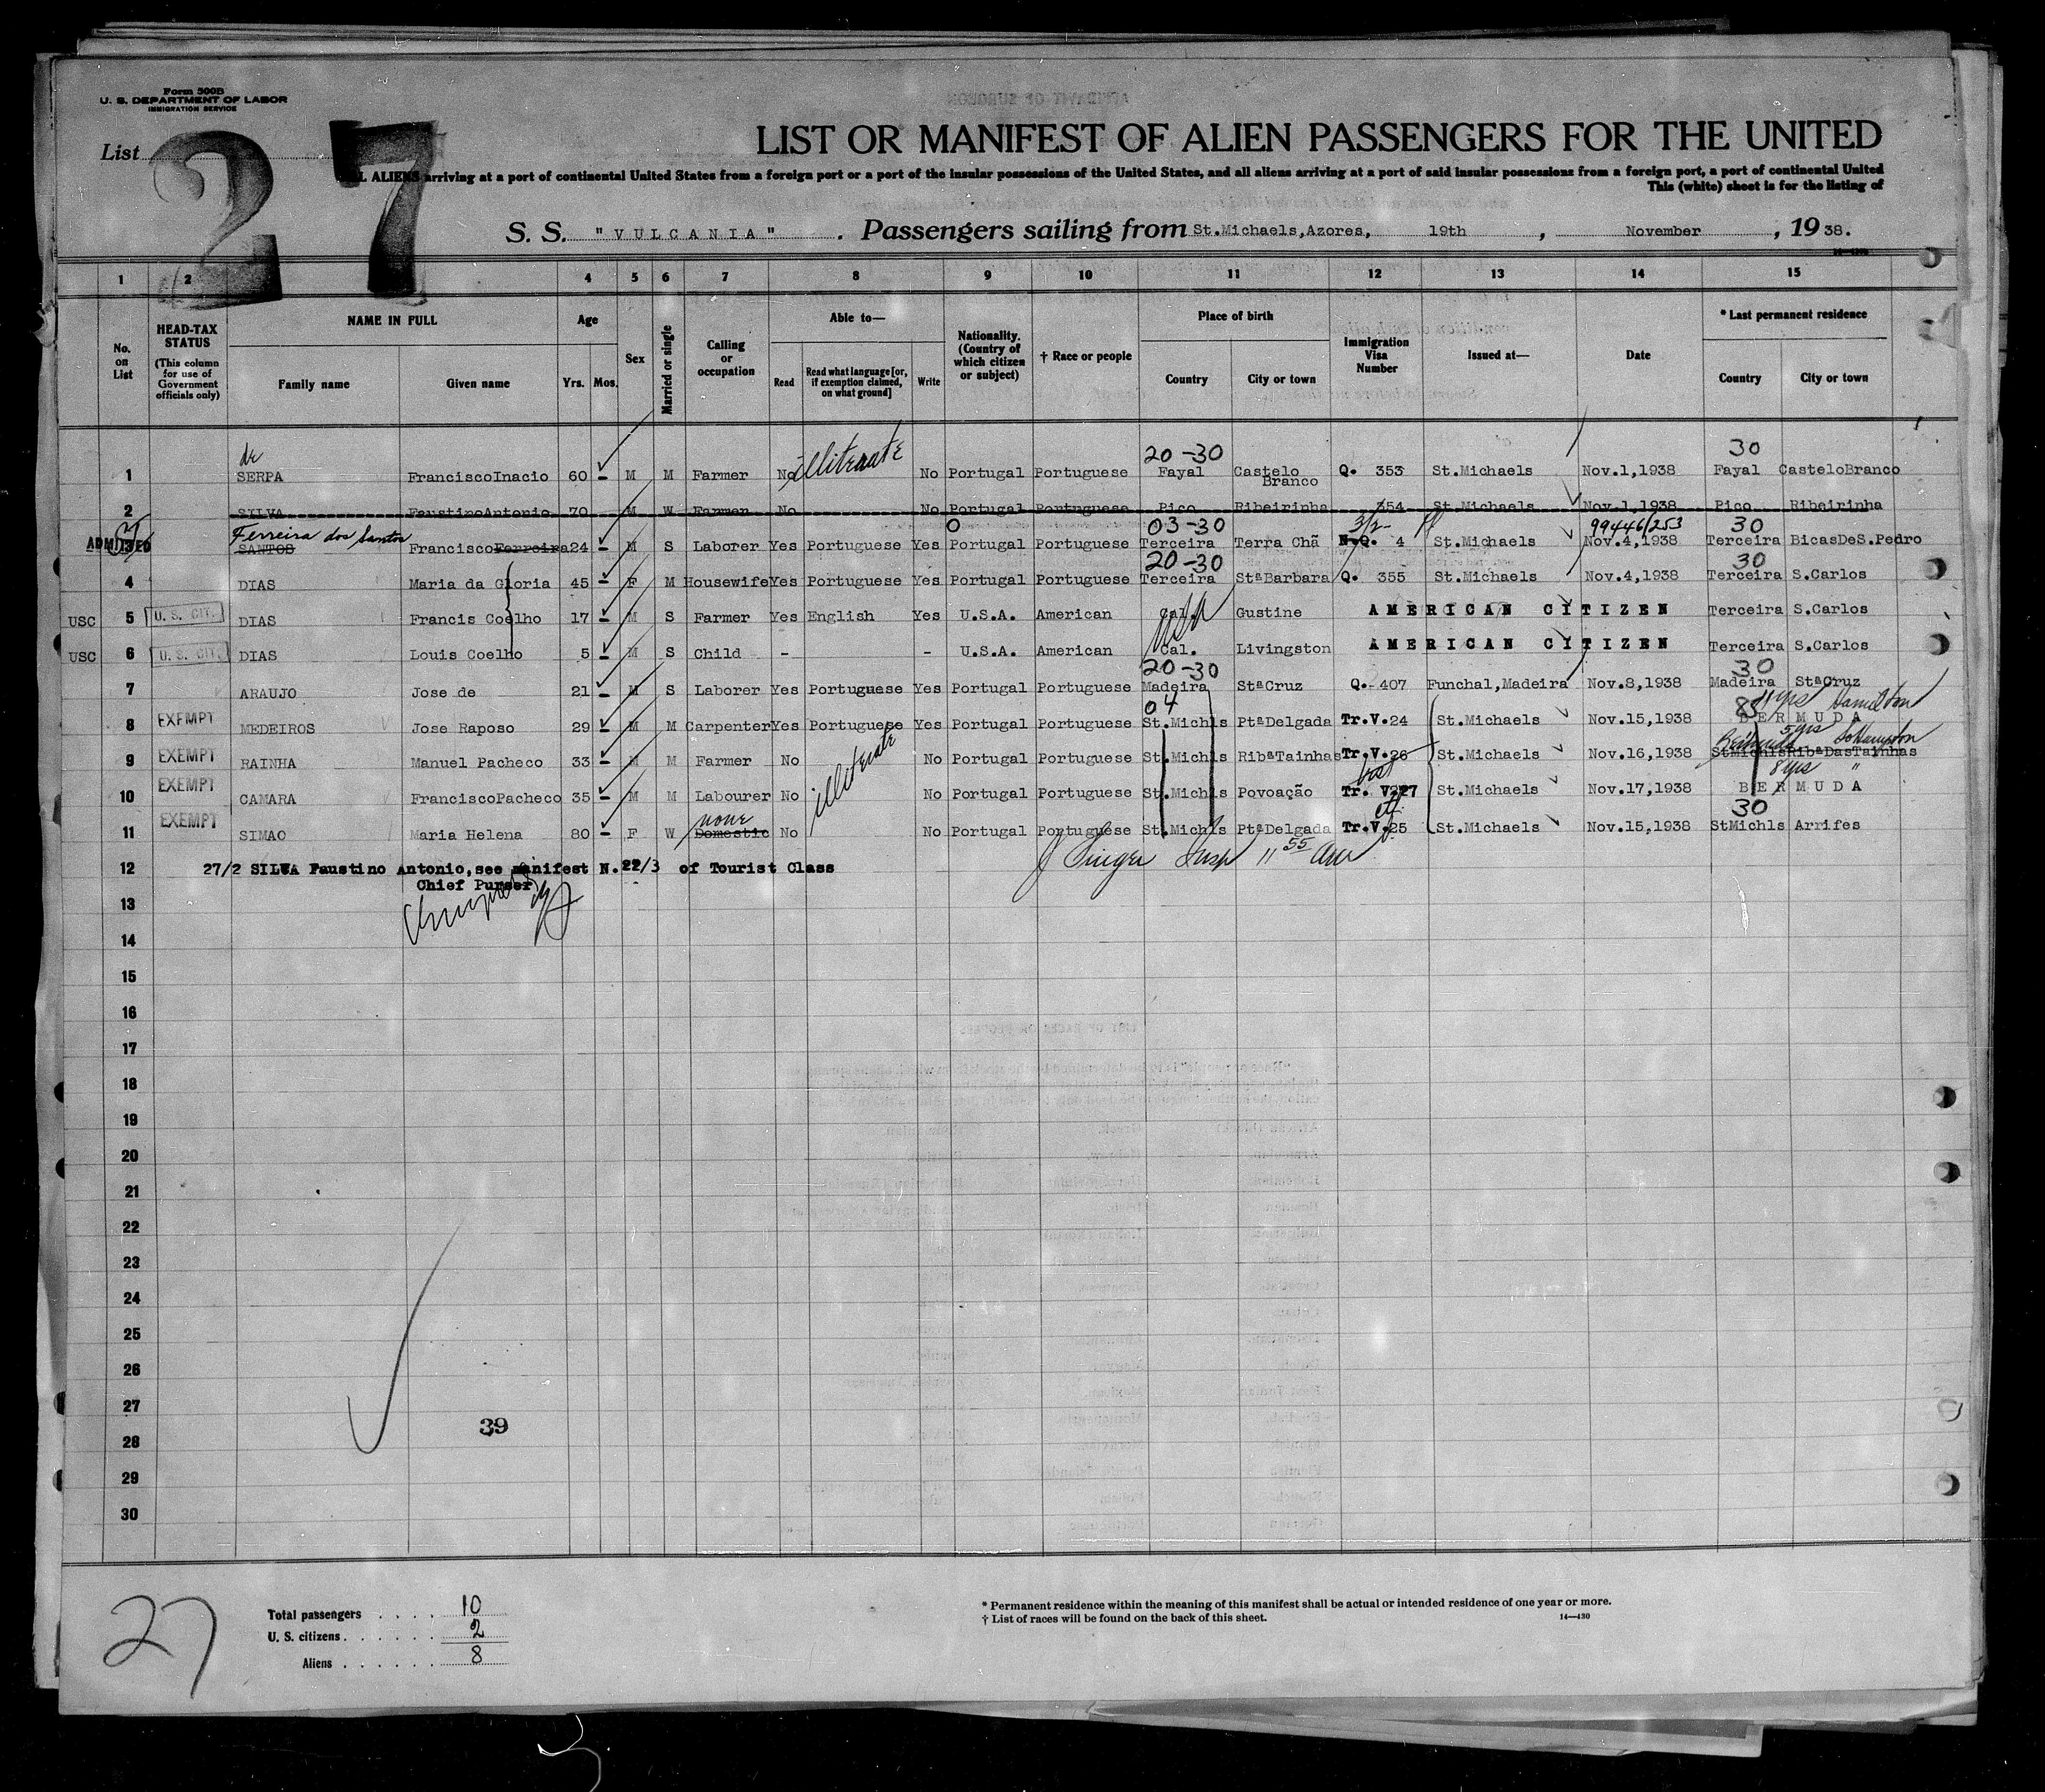 Form 500B
U. S. DEPARTMENT OF LABOR
IMMIGRATION SERVICE
List 27
LIST OR MANIFEST OF ALIEN PASSENGERS FOR THE UNITED
ALIENS arriving at a port of continental United States from a foreign port or a port of the insular possessions of the United States, and all aliens arriving at a port of said insular possessions from a foreign port, a port of continental United
This (white) sheet is for the listing of
S. S. "VULCANIA". Passengers sailing from St.Michaels,Azores, 19th, November, 1938.
1 2 4 5 6 7 8 9 10 11 12 13 14 15
No. on List
HEAD-TAX STATUS (This column for use of Government officials only)
NAME IN FULL
Family name Given name
Age
Yrs. Mos.
Sex
Married or single
Calling or occupation
Able to—
Read
Read what language [or, if exemption claimed, on what ground]
Write
Nationality. (Country of which citizen or subject)
† Race or people
Place of birth
Country City or town
Immigration Visa Number
Issued at—
Date
* Last permanent residence
Country City or town
de 20-30 30
1 SERPA FranciscoInacio 60 - M M Farmer No illiterate No Portugal Portuguese Fayal Castelo Branco Q. 353 St.Michaels Nov.1,1938 Fayal CasteloBranco
2 SILVA FaustinoAntonio 70 M W Farmer No No Portugal Portuguese Pico Ribeirinha 354 St.Michaels Nov.1,1938 Pico Ribeirinha
Ferreira dos Santos 0 03-30 3/2- 99446/253 30
ADMITTED 3 SANTOS FranciscoFerreira 24 - M S Laborer Yes Portuguese Yes Portugal Portuguese Terceira Terra Chã N.Q. 4 St.Michaels Nov.4,1938 Terceira BicasDeS.Pedro
20-30 30
4 DIAS Maria da Gloria 45 - F M Housewife Yes Portuguese Yes Portugal Portuguese Terceira StªBarbara Q. 355 St.Michaels Nov.4,1938 Terceira S.Carlos
USC 5 U. S. CIT. DIAS Francis Coelho 17 - M S Farmer Yes English Yes U.S.A. American Cal. Gustine AMERICAN CITIZEN Terceira S.Carlos
USA
USC 6 U. S. CIT. DIAS Louis Coelho 5 - M S Child - - U.S.A. American Cal. Livingston AMERICAN CITIZEN Terceira S.Carlos
20-30 30
7 ARAUJO Jose de 21 - M S Laborer Yes Portuguese Yes Portugal Portuguese Madeira StªCruz Q. 407 Funchal,Madeira Nov.8,1938 Madeira StªCruz
04 85 11 yrs Hamilton
8 EXEMPT MEDEIROS Jose Raposo 29 - M M Carpenter Yes Portuguese Yes Portugal Portuguese St.Michls PtªDelgada Tr.V.24 St.Michaels Nov.15,1938 BERMUDA
Bermuda 5 yrs So Hampton
9 EXEMPT RAINHA Manuel Pacheco 33 - M M Farmer No illiterate No Portugal Portuguese St.Michls RibªTainhas Tr.V.26 St.Michaels Nov.16,1938 StMichlsRibªDasTainhas
8 yrs "
10 EXEMPT CAMARA FranciscoPacheco 35 - M M Labourer No No Portugal Portuguese St.Michls Povoação Tr. V227 St.Michaels Nov.17,1938 BERMUDA
none 30
11 EXEMPT SIMAO Maria Helena 80 - F W Domestic No No Portugal Portuguese St.Michls PtªDelgada Tr.V.25 St.Michaels Nov.15,1938 StMichls Arrifes
12 27/2 SILVA Faustino Antonio,see manifest N.22/3 of Tourist Class
Chief Purser
13
14
15
16
17
18
19
20
21
22
23
24
25
26
27
39
28
29
30
27
Total passengers . . . . 10
U. S. citizens . . . . . . 2
Aliens . . . . . . 8
* Permanent residence within the meaning of this manifest shall be actual or intended residence of one year or more.
† List of races will be found on the back of this sheet. 14—430